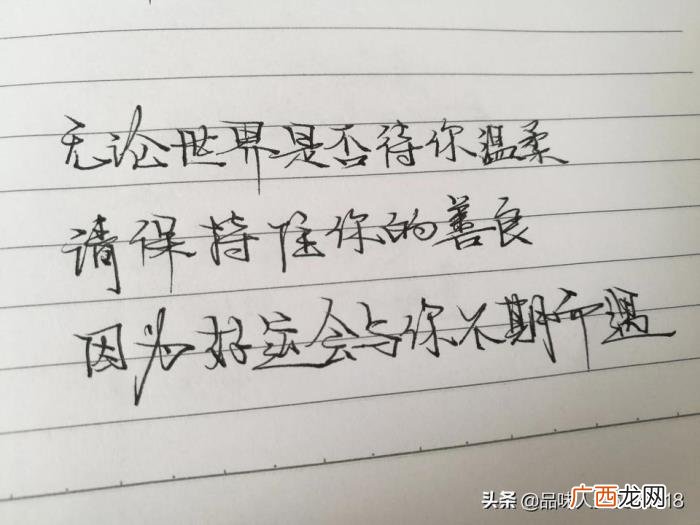 无论世界是否待你温柔
请保持住你的善良
因为好运会与你不期而遇
头条 @品味人 18
广西龙网